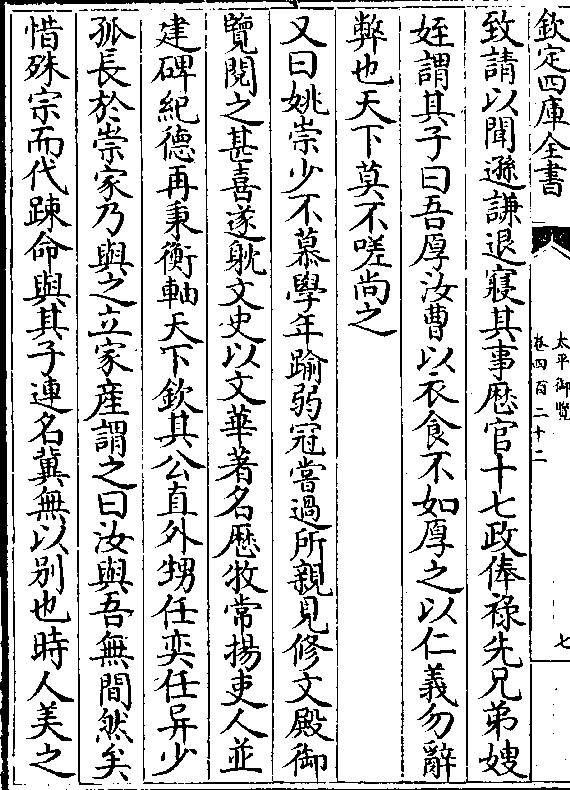 欽定四庫全書
太平御覽
卷四百二十二
七
致請以聞遜謙退寢其事歷官十七政俸祿先兄弟嫂
姪謂其子曰吾厚汝曹以衣食不如厚之以仁義勿辭
弊也天下莫不嗟尚之
又曰姚崇少不慕學年踰弱冠嘗過所親見修文殿御
覽閱之甚喜遂躭文史以文華著名歷牧常揚吏人並
建碑紀德再秉衡軸天下欽其公直外甥任奕任异少
孤長於崇家乃與之立家產謂之曰汝與吾無間然矣
惜殊宗而代踈命與其子連名冀無以别也時人美之